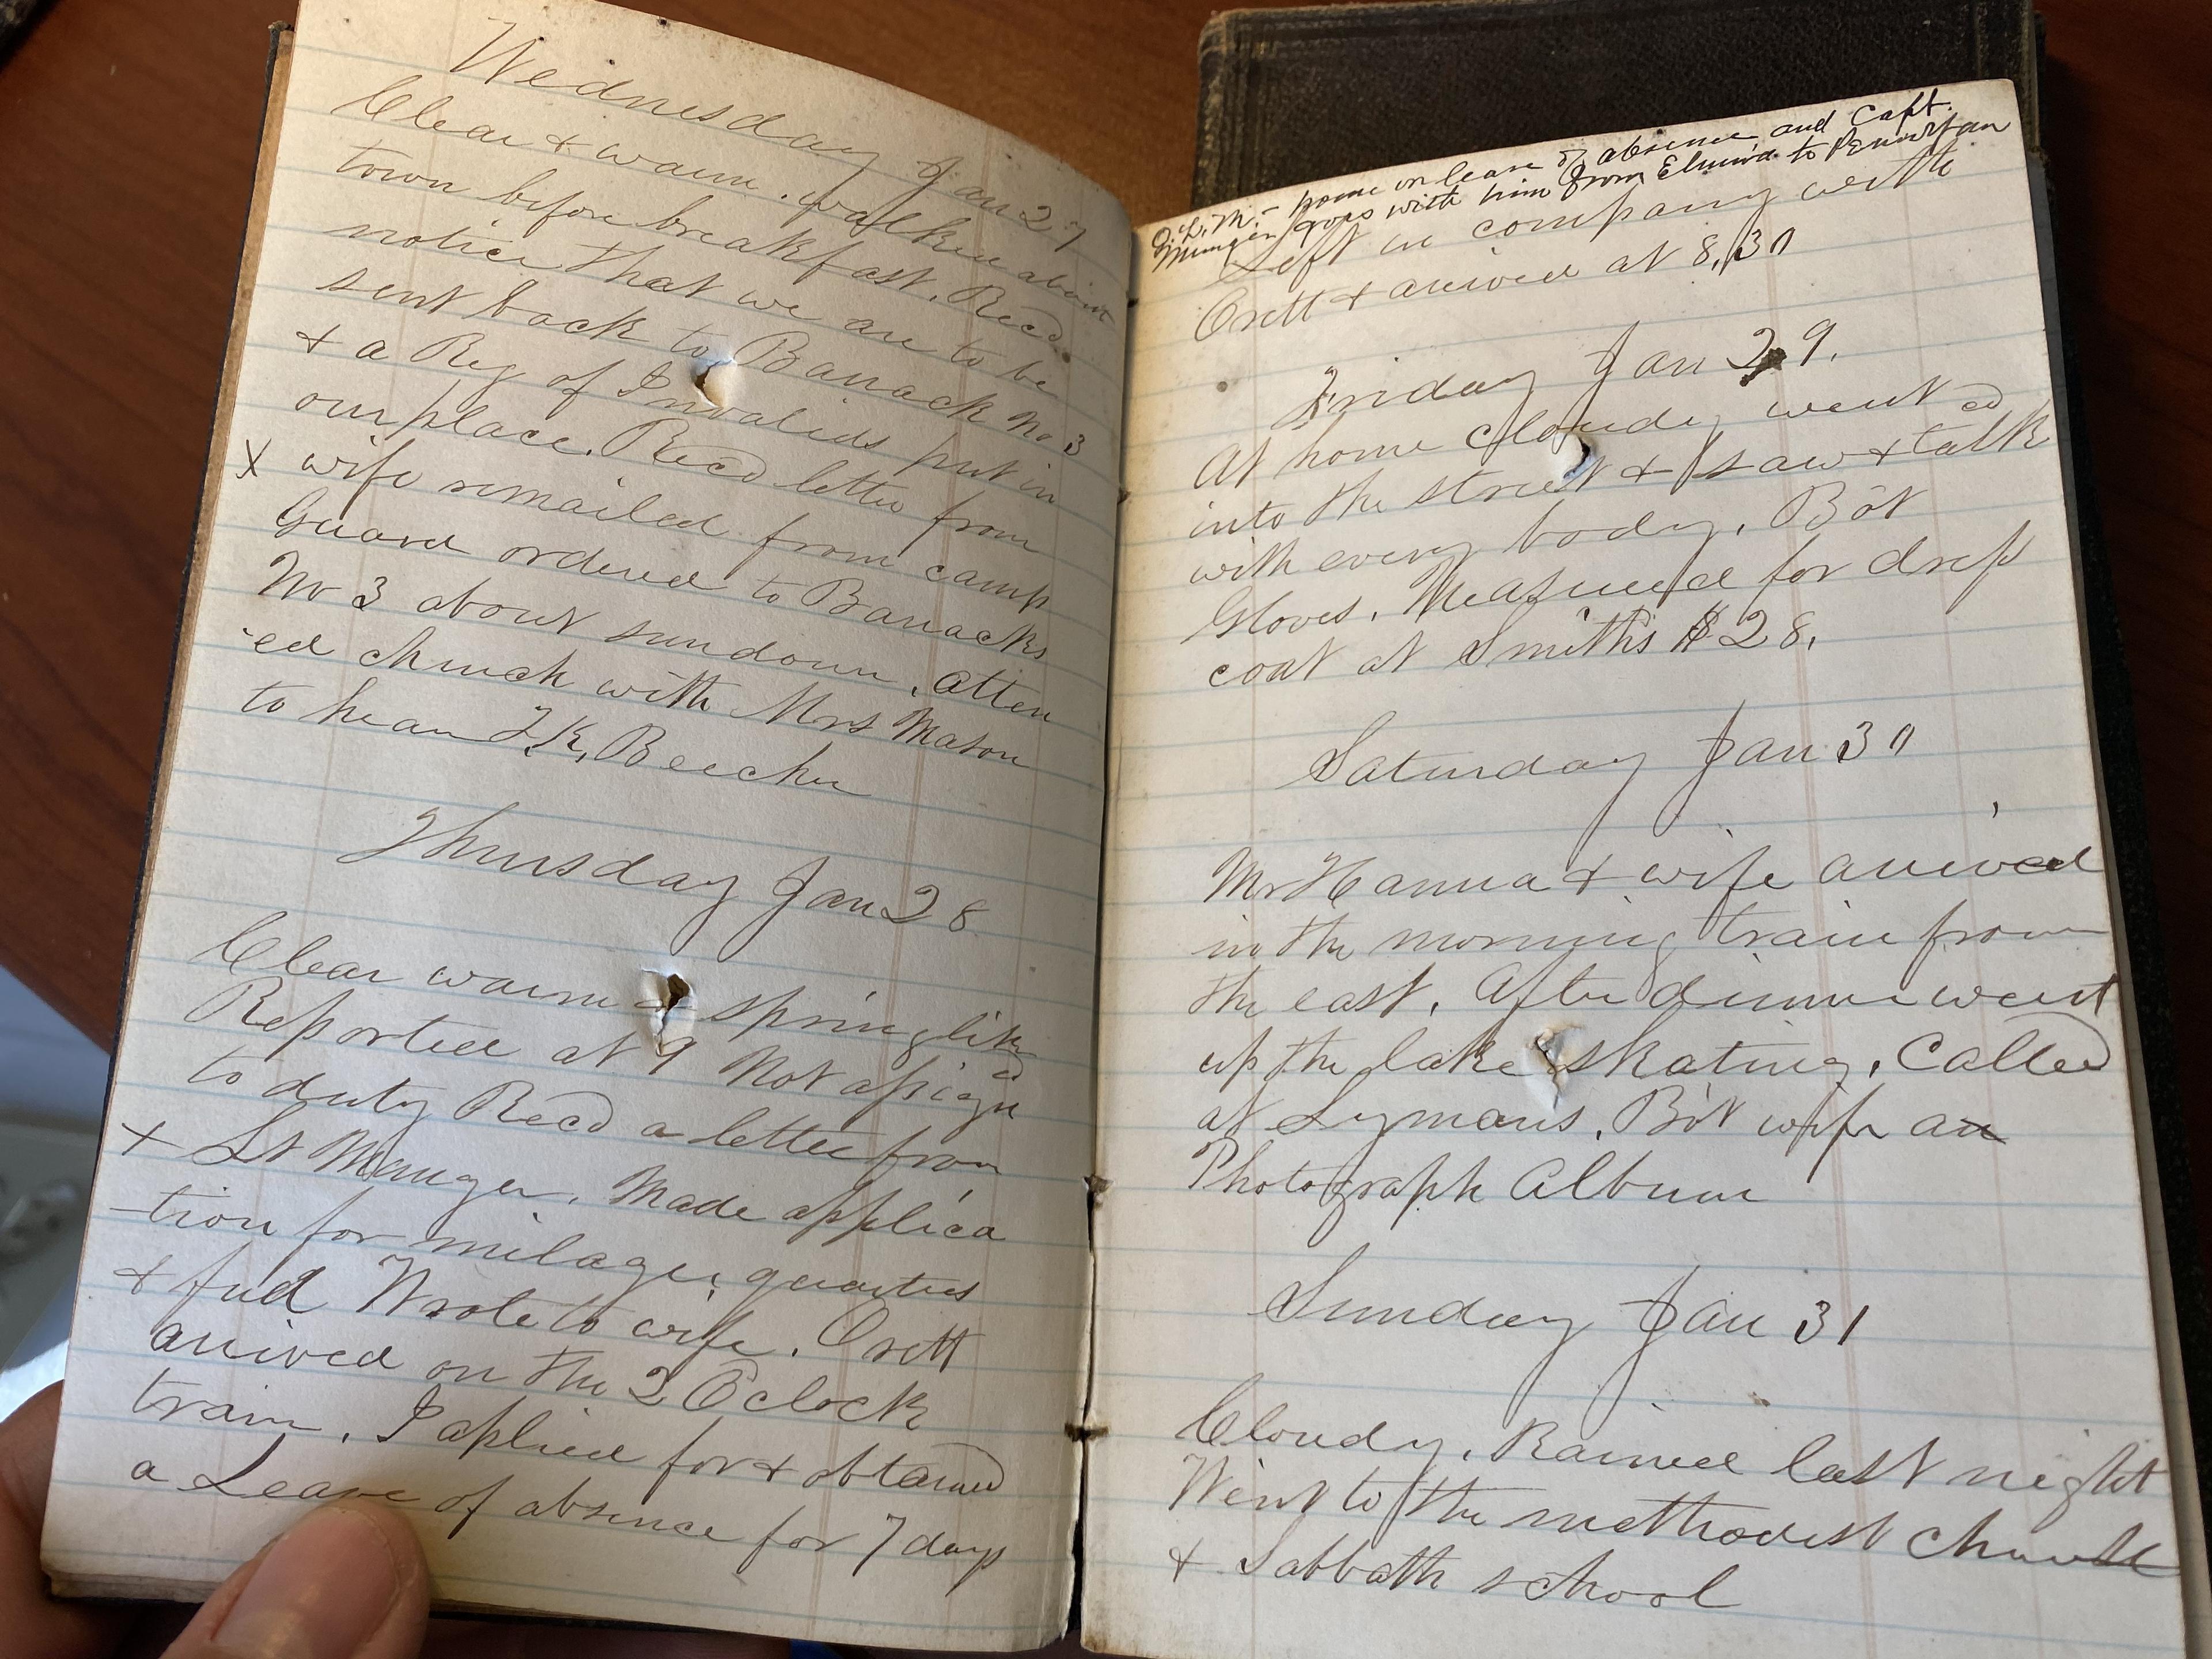 Wednesday Jan 27
Clear & warm. Walked about
town before breakfast. Recd
notice that we are to be
sent back to Barrack No 3
& a Reg of Invalids put in
our place. Recd letter from
X wife remailed from camp
Guard ordered to Barracks
No 3 about sundown. Atten
-ed church with Mrs Mason
to hear T.K. Beecher
Thursday Jan 28
Clear warm & spring like
Reported at 9 Not assignd
to duty Recd a letter from
+ Lt Munger. Made applica
-tion for milage, quarters
& fuel Wrote to wife. Orett
arrived on the 2 Oclock
train. I aplied for & obtained
a Leave of absence for 7 days
L.M. - home on leave of absence and Capt.
Munger goes with him from Elmira to Penn Yan
Left in company with
Orett & arrived at 8,30
Friday Jan 29.
At home cloudy went
into the street & saw & talked
with every body. Bot
Gloves. Measured for dress
coat at Smiths $28.
Saturday Jan 30
Mr Hanna & wife arrived
in the morning train from
the east. After dinner went
up the lake skating. Called
at Lymans. Bot wife an
Photograph Album
Sunday Jan 31
Cloudy. Rained last night
Went to the methodist church
& Sabbath school